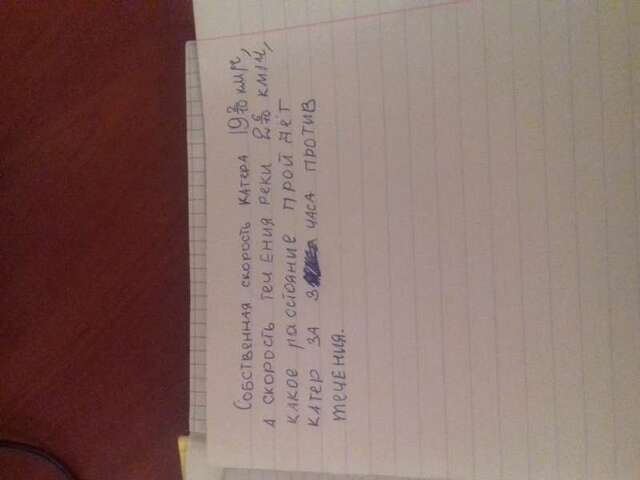 Собственная скорость катера 19 2/10 км/ч,
а скорость течения реки 2 6/10 км/ч,
какое расстояние пройдет
катер за 3 часа против
течения.